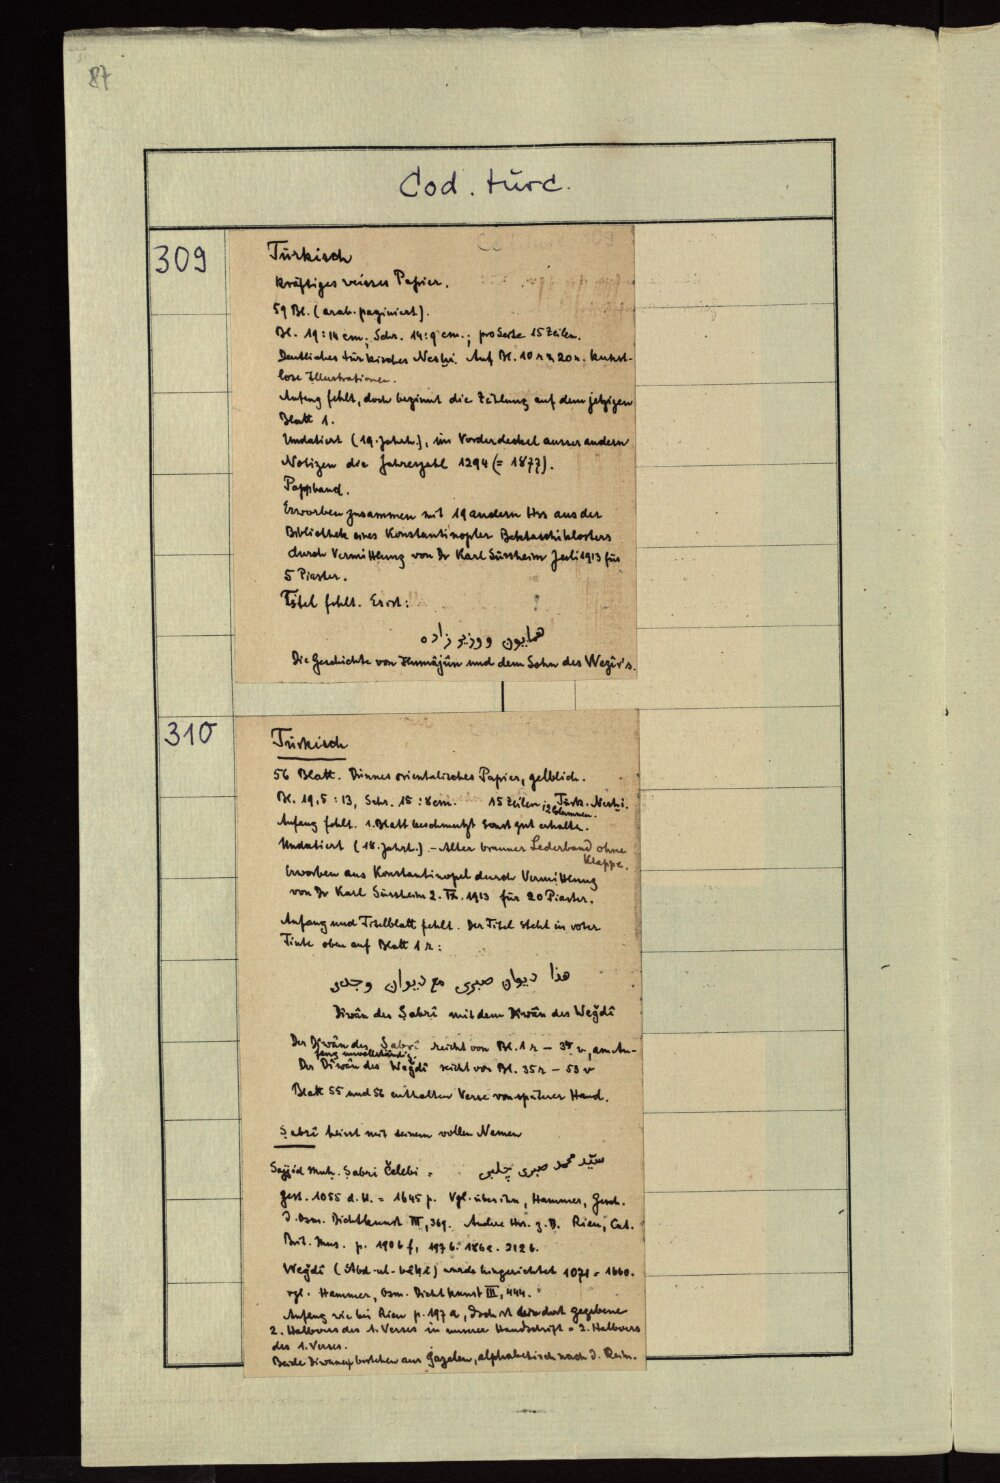 87
Cod. turc.
309
Türkisch
Kräftiges weisses Papier.
59 Bl. (arab. paginiert).
Bl. 19:14 cm; Schr. 14:9 cm.; pro Seite 15 Zeilen.
Deutliches türkisches Nesḫi. Auf Bl. 10 r u. 20 r. kunst-
lose Illustrationen.
Anfang fehlt, doch beginnt die Zählung auf dem jetzigen
Blatt 1.
Undatiert (19. Jahrh.), im Vorderdeckel ausser andern
Notizen die Jahreszahl 1294 (= 1877).
Pappband.
Erworben zusammen mit 19 andern Hss aus der
Bibliothek eines Konstantinopler Bektaschiklosters
durch Vermittlung von Dr Karl Süssheim Juli 1913 für
5 Piaster.
Titel fehlt. Es ist:
همايون و وزير زاده
Die Geschichte von Humâjûn und dem Sohn des Wezîr's.
310
Türkisch
56 Blatt. Dünnes orientalisches Papier, gelblich.
Bl. 19,5 : 13, Schr. 15 : 8 cm. 15 Zeilen, 2 Columnen. Türk. Nesḫi.
Anfang fehlt. 1. Blatt beschmutzt sonst gut erhalten.
Undatiert (18. Jahrh.) – Alter brauner Lederband ohne
Klappe.
Erworben aus Konstantinopel durch Vermittlung
von Dr Karl Süssheim 2. IX. 1913 für 20 Piaster.
Anfang und Titelblatt fehlt. Der Titel steht in roter
Tinte oben auf Blatt 1 r:
هذا ديوان صبرى مع ديوان وجدى
Dîwân des Ṣabrî mit dem Dîwân des Weǧdî
Der Dîwân des Ṣabrî reicht von Bl. 1 r – 34 v, am An-
fang unvollständig.
Der Dîwân des Weǧdî reicht von Bl. 35 r – 53 v
Blatt 55 und 56 enthalten Verse von späterer Hand.
Ṣabrî heisst mit seinem vollen Namen
Sejjid Muḥ. Ṣabri Čelebi. سيّد محمد صبرى چلبى
gest. 1055 d. H. = 1645 p. Vgl. über ihn, Hammer, Gesch.
d. Osm. Dichtkunst III, 369. Andere Hss. z. B. Rieu, Cat.
Brit. Mus. p. 190 b f, 197 b. 186 a. 212 b.
Weǧdî (Abd-ul-bâḳî) wurde hingerichtet 1071 = 1660.
vgl. Hammer, Osm. Dichtkunst III, 444.
Anfang wie bei Rieu p. 197 a, doch ist der dort gegebene
2. Halbvers des 1. Verses in unserer Handschrift = 2. Halbvers
des 1. Verses.
Beide Diwane bestehen aus Gazelen, alphabetisch nach d. Reim.